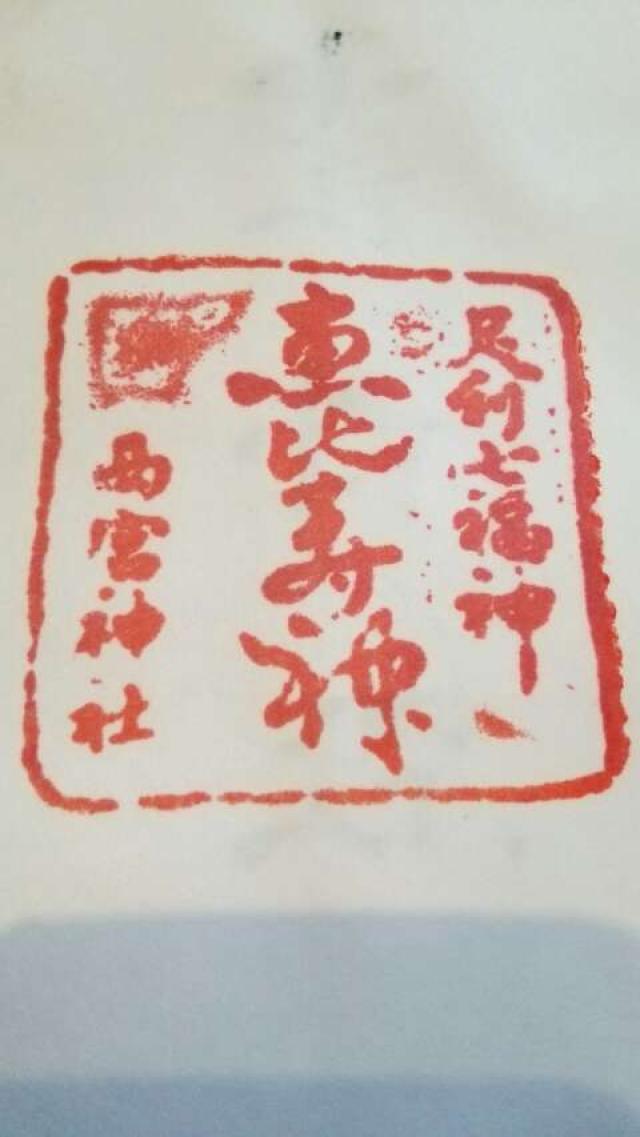 足利七福神
恵比寿神
西宮神社